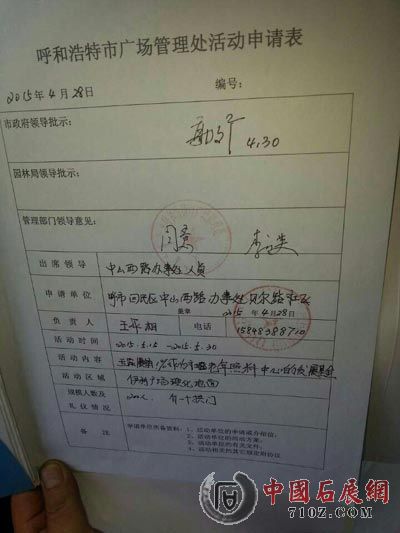 呼和浩特市广场管理处活动申请表
2015年4月28日 编号:
市政府领导批示:
4.30
园林局领导批示:
管理部门领导意见:
同意
出席领导 中山西路办事处人员
申请单位 呼市回民区中山西路办事处贝尔路社区
盖章 2015年4月28日
负责人 王 电话 15848388710
活动时间 2015.5.15 - 2015.5.30
活动内容
活动区域 伊利广场硬化地面
规模人数及
礼仪情况 200人
备注 申请单位所备资料:1、活动单位的申请或介绍信;
2、活动单位的活动方案;
3、活动单位的有关文件;
4、活动相关的其它规定附协议
中國石展網
710Z.COM